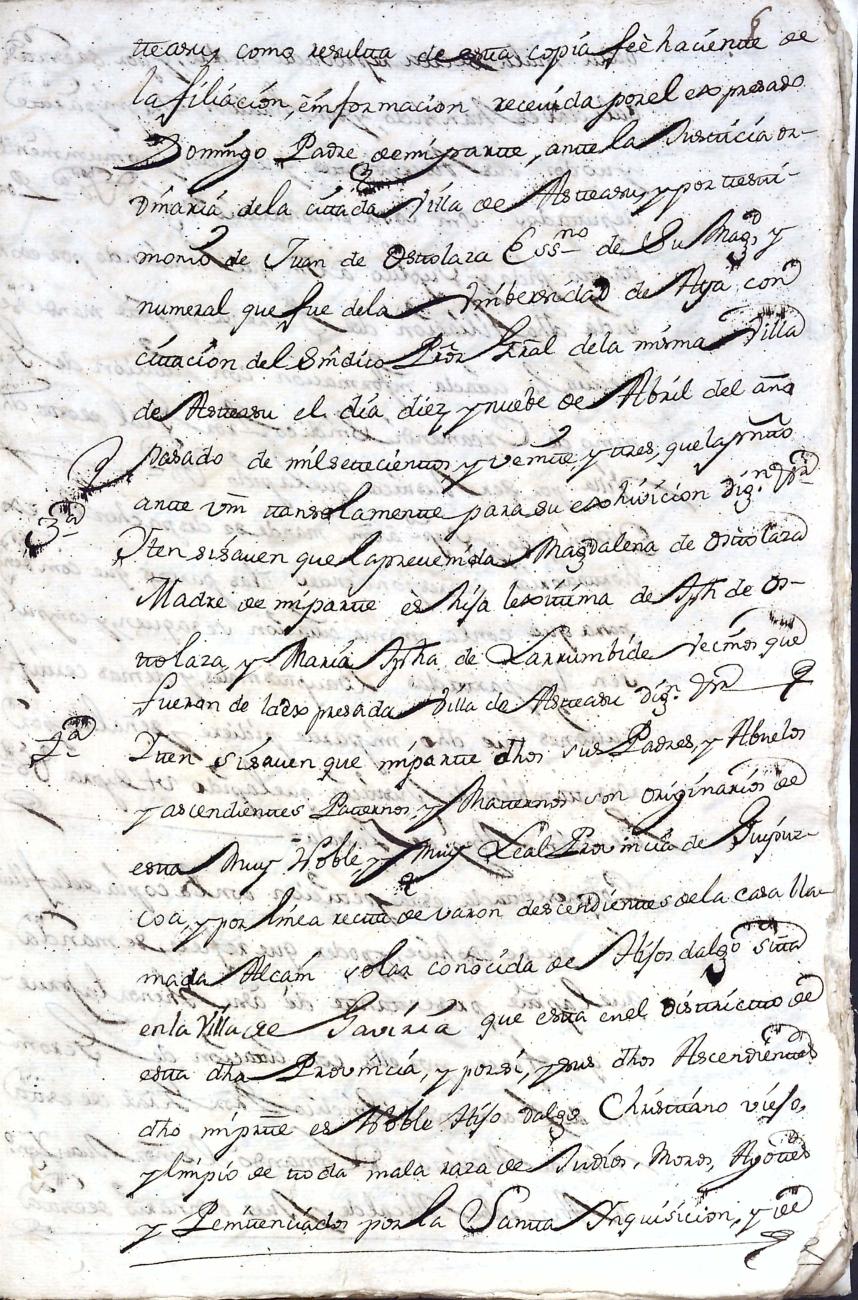 6
tteasu, como resulta de esta copia feèhaciente de
la filiación, è informacion recevida por el expresado
Domingo Padre de mi parte, ante la Justicia or-
dinaria de la citada Villa de Asteasu, y por testi-
monio de Juan de Ostolaza Essno de Su Magd y
numeral que fue de la Unibersidad de Aya con
citación del Sindico Pror Gral de la misma Villa
de Asteasu el día diez y nuebe de Abril del año
pasado de mil setecientos y veinte y tres, que la presnto
ante Vm tan solamente para su exhivicion Dign
3a Yten si saven que la prevenida Magdalena de Ostolaza
Madre de mi parte ès hija lexitima de Jph de Os-
tolaza, y María Jpha de Larrumbide Vecinos que
fueron de la expresada Villa de Asteasu Dign
4a Yten si saven que mi parte dhos sus Padres, y Abuelos
y ascendientes Paternos, y Maternos son originarios de
esta Muy Noble, y Muy Leal Provincia de Guipuz-
coa, y por línea recta de varon descendientes de la casa lla-
mada Alcain solar conocida de Hijos dalgo sita
en la Villa de Gaviria que esta en el Districtto de
esta dha Provincia, y por si, y sus dhos Ascendientes
dho mi parte es Noble Hijo dalgo Christiano viejo,
y limpio de toda mala raza de Judios, Moros, Agotes
y Penitenciados por la Santa Ynquisicion, y de